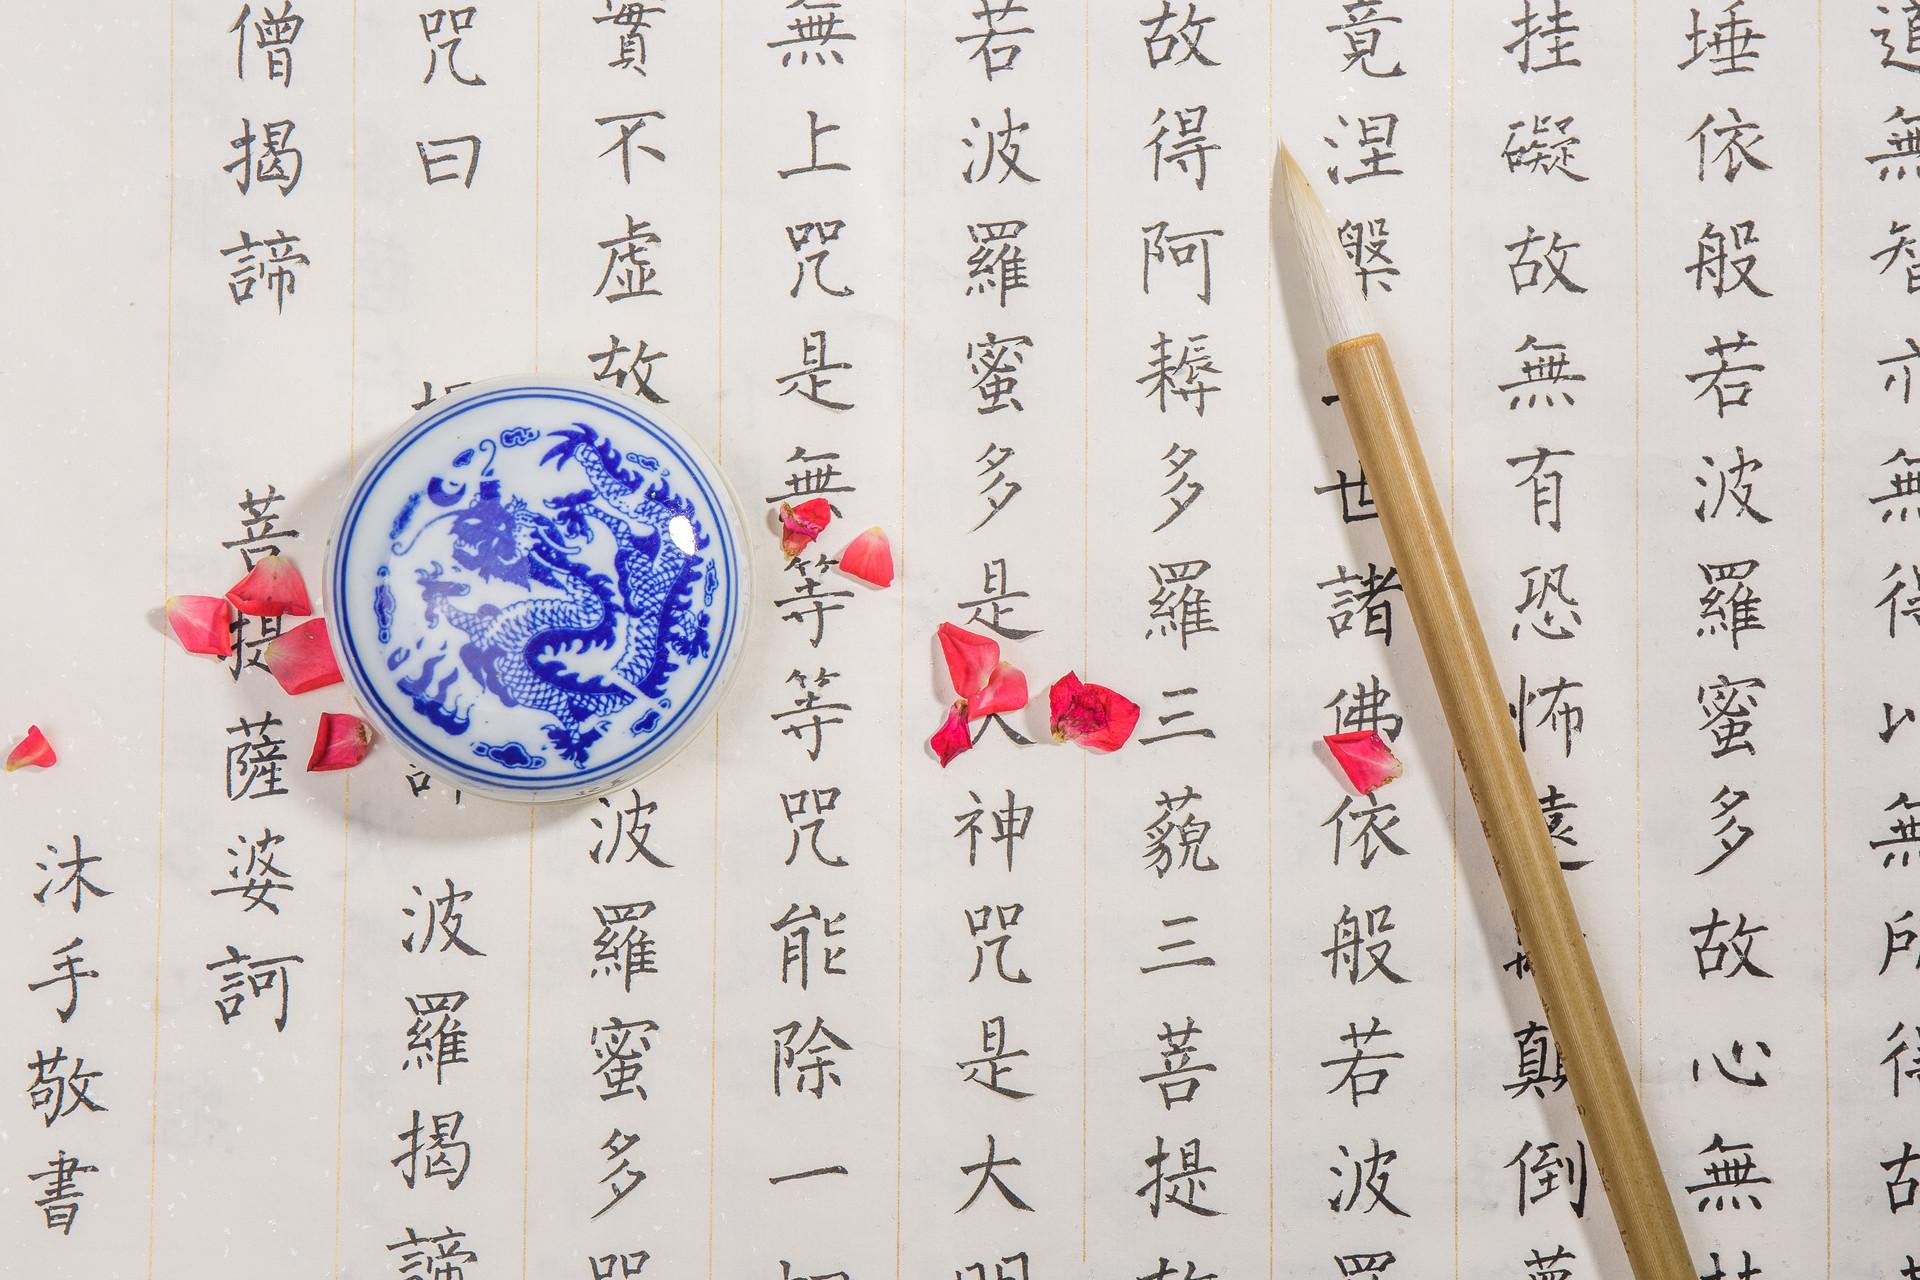 無智亦無得以無所得故
埵依般若波羅蜜多故心無
挂礙故無有恐怖遠顛倒
竟涅槃世諸佛依般若波
故得阿耨多羅三藐三菩提故
若波羅蜜多是神咒是大明
無上咒是無等等咒能除一切
實不虛故波羅蜜多咒
咒曰波羅揭諦
僧揭諦菩提薩婆訶
沐手敬書